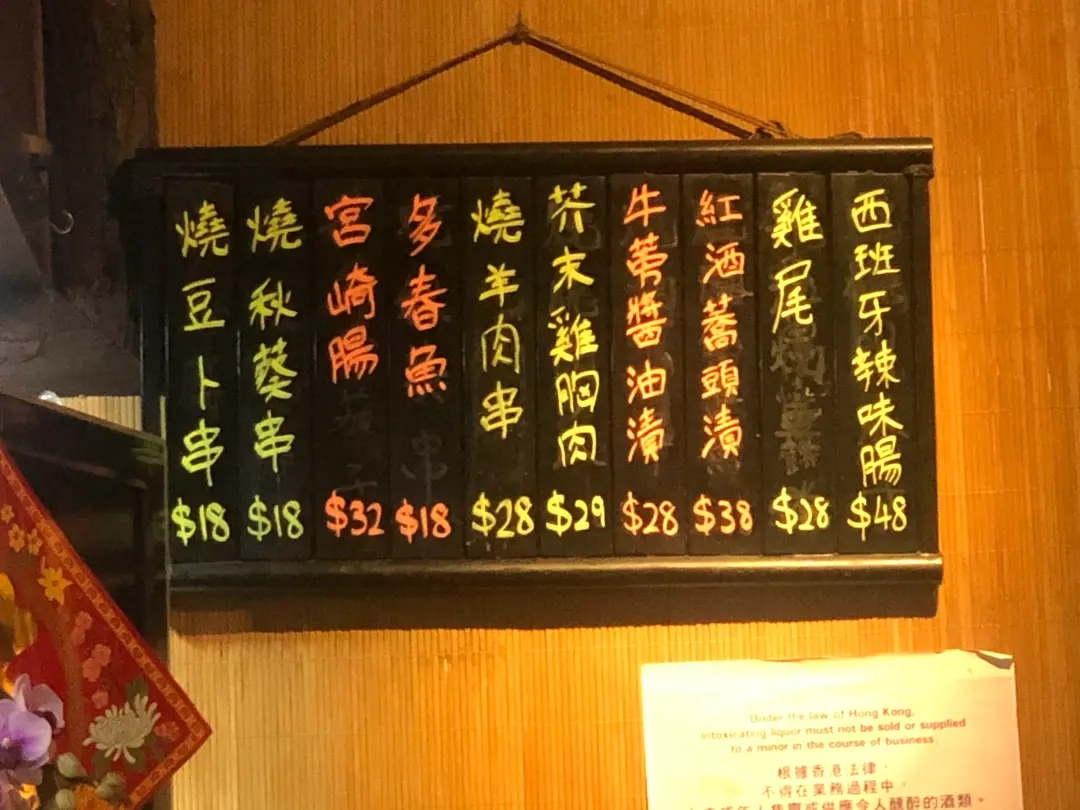 西班牙辣味腸 $48
雞尾 $28
紅酒蕎頭漬 $38
牛蒡醬油漬 $28
芥末雞胸肉 $29
燒羊肉串 $28
多春魚 $18
宮崎腸 $32
燒秋葵串 $18
燒豆卜串 $18
Under the law of Hong Kong,
intoxicating liquor must not be sold or supplied
to a minor in the course of business.
根據香港法律,
不得在業務過程中,
向未成年人售賣或供應令人醺醉的酒類。